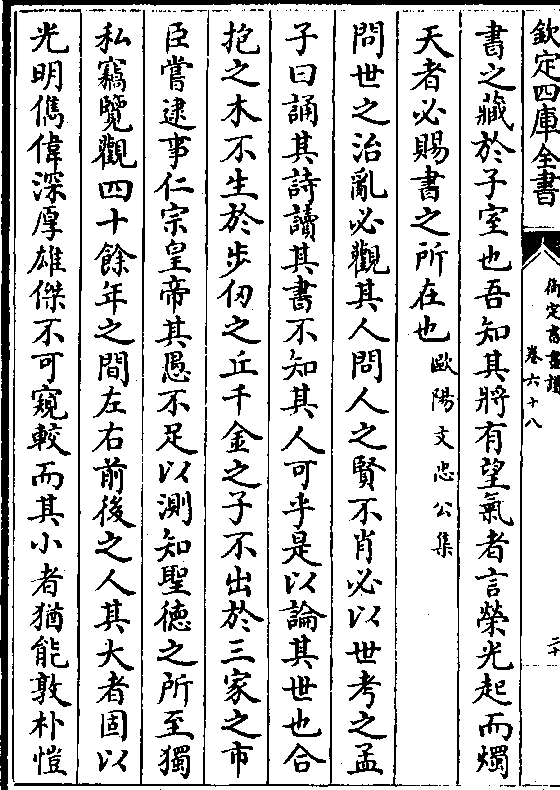 欽定四庫全書
御定書畫譜
卷六十八
二十
書之藏於子室也吾知其將有望氣者言榮光起而燭
天者必賜書之所在也歐陽文忠公集
問世之治亂必觀其人問人之賢不肖必以世考之孟
子曰誦其詩讀其書不知其人可乎是以論其世也合
抱之木不生於步仞之丘千金之子不出於三家之市
臣嘗逮事仁宗皇帝其愚不足以測知聖德之所至獨
私竊覽觀四十餘年之間左右前後之人其大者固以
光明儁偉深厚雄傑不可窺較而其小者猶能敦朴愷